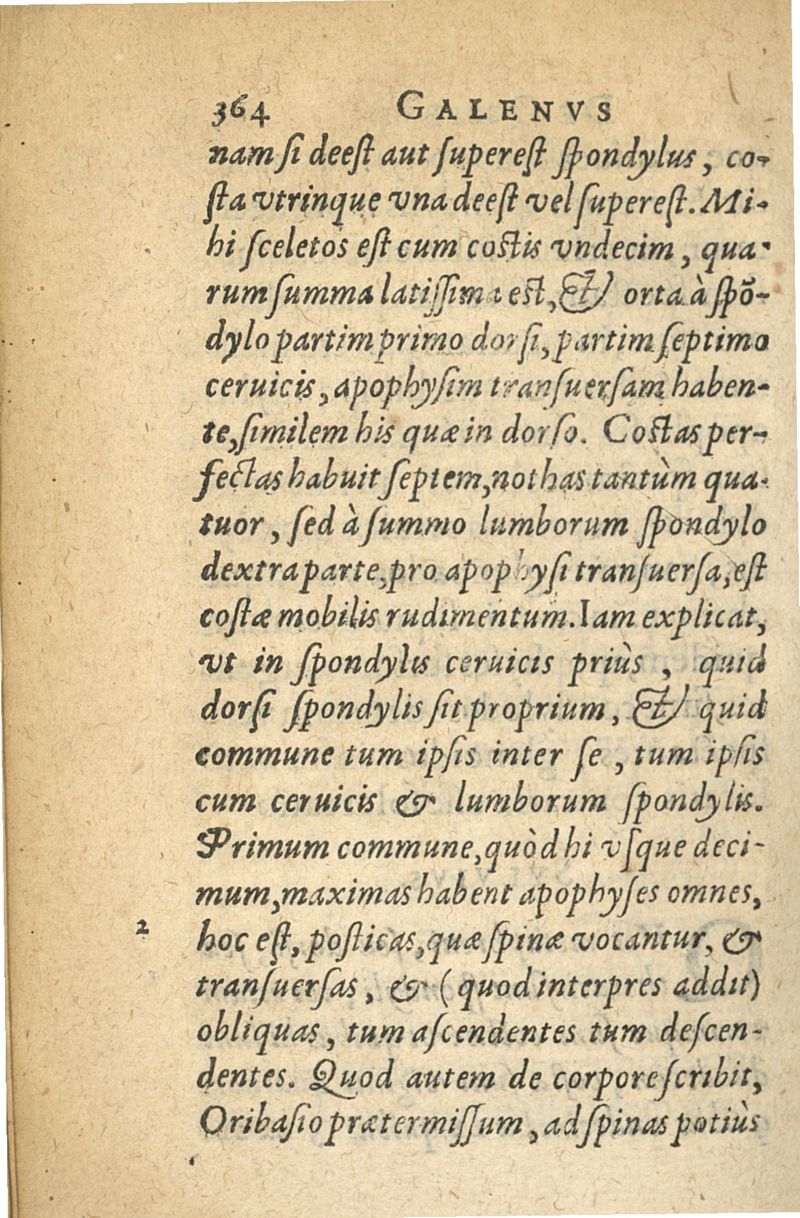 364 GALENVS
nam ſi deeſt aut ſupereſt ſpondylus, co-
ſta vtrinque vna deeſt vel ſupereſt. Mi-
hi ſceletos eſt cum coſtis vndecim, qua-
rum ſumma latiſſima eſt, & orta à ſpō-
dylo partim primo dorſi, partim ſeptimo
ceruicis, apophyſim tranſuerſam haben-
te, ſimilem his quæ in dorſo. Coſtas per-
fectas habuit ſeptem, nothas tantùm qua-
tuor, ſed à ſummo lumborum ſpondylo
dextra parte, pro apophyſi tranſuerſa, eſt
coſtæ mobilis rudimentum. Iam explicat,
vt in ſpondylis ceruicis priùs, quid
dorſi ſpondylis ſit proprium, & quid
commune tum ipſis inter ſe, tum ipſis
cum ceruicis & lumborum ſpondylis.
Primum commune, quòd hi vſque deci-
mum, maximas habent apophyſes omnes,
2 hoc eſt, poſticas, quæ ſpinæ vocantur, &
tranſuerſas, & (quod interpres addit)
obliquas, tum aſcendentes tum deſcen-
dentes. Quod autem de corpore ſcribit,
Oribaſio prætermiſſum, ad ſpinas potiùs